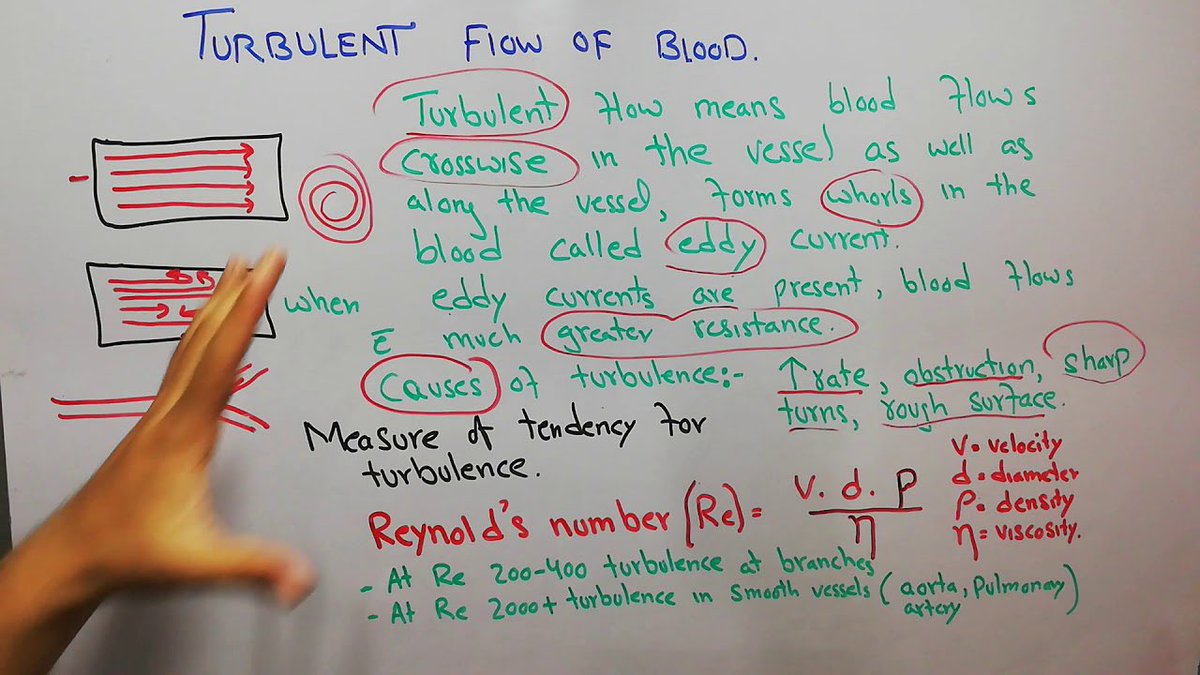 TURBULENT FLOW OF BLOOD.
Turbulent flow means blood flows
crosswise in the vessel as well as
along the vessel, forms whorls in the
blood called eddy current.
when eddy currents are present, blood flows
c̄ much greater resistance.
Causes of turbulence:- ↑ rate, obstruction, sharp
turns, rough surface.
Measure of tendency for
turbulence.
Reynold's number (Re) = v. d. ρ / η
v = velocity
d = diameter
ρ = density
η = viscosity.
- At Re 200-400 turbulence at branches
- At Re 2000+ turbulence in smooth vessels (aorta, Pulmonay
artery)